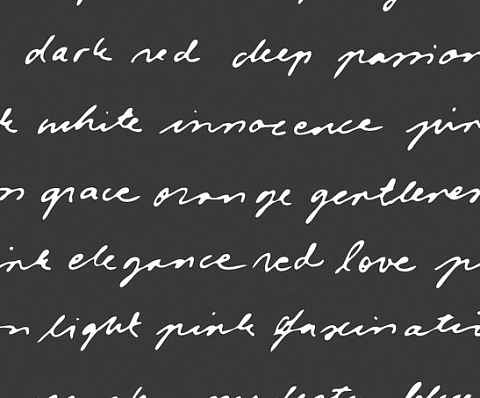 dark red deep passion
k white innocence pin
n grace orange gentlenes
ink elegance red love p
n light pink fascinati